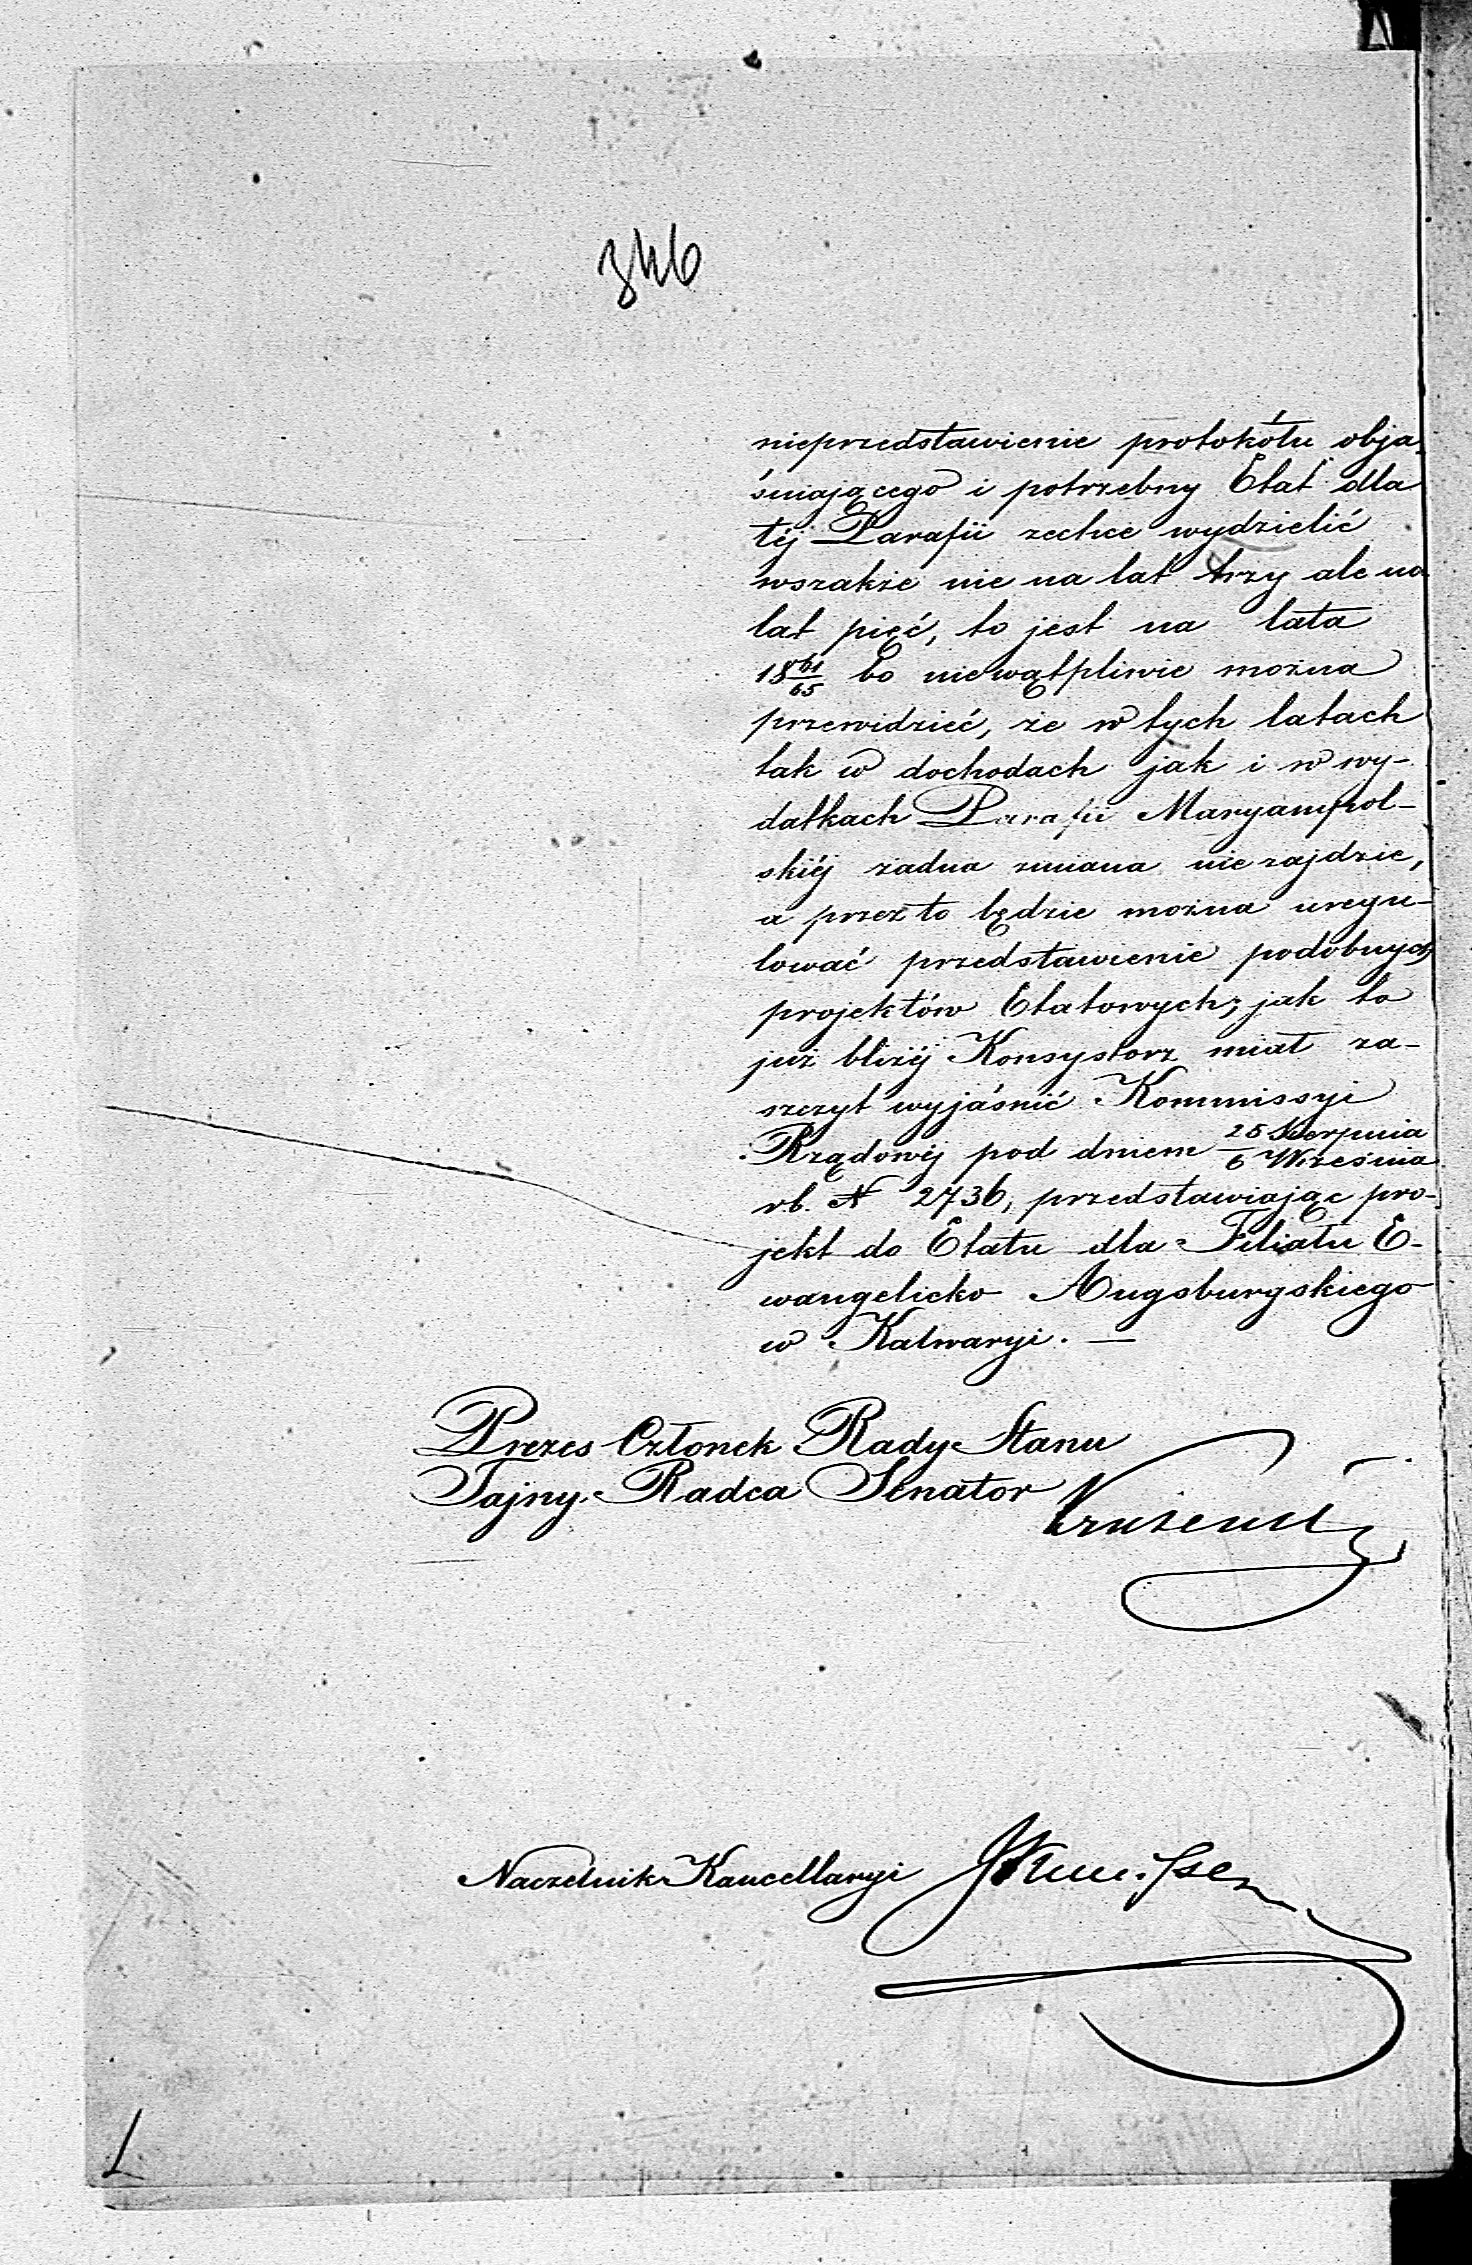 346
nieprzedstawienie protokółu obja-
śniającego i potrzebny Etat dla
téj Parafii zechce wydzielić
wszakże nie na lat trzy ale na
lat pięć, to jest na lata
18 61/65 bo niewątpliwie można
przewidzieć, że w tych latach
tak w dochodach jak i w wy-
datkach Parafii Maryampol-
skiéj żadna zmiana nie zajdzie,
a przez to będzie można uregu-
lować przedstawienie podobnych
projektów Etatowych; jak to
już bliżéj Konsystorz miał za-
szczyt wyjaśnić Kommissyi
Rządowéj pod dniem 25 Sierpnia / 6 Września
r.b. N 2736, przedstawiając pro-
jekt do Etatu dla Filiału E-
wangelicko Augsburgskiego
w Kalwaryi. —
Prezes Członek Rady Stanu
Tajny Radca Senator
Naczelnik Kancellaryi